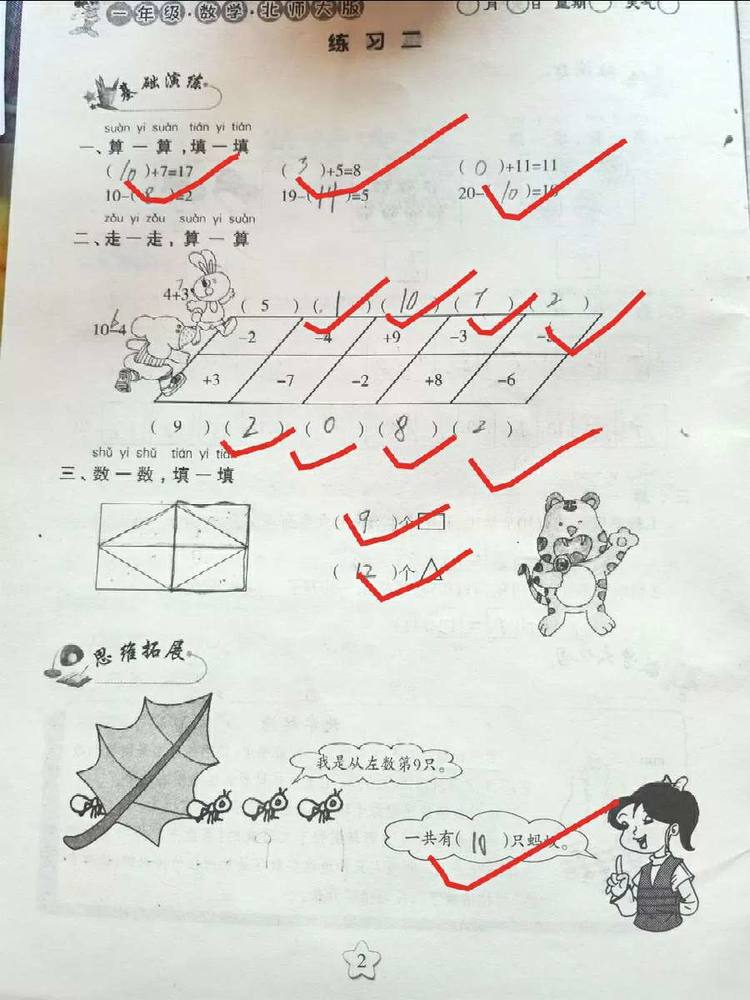 一年级·数学·北师大版 月 日 星期 天气
练习二
基础演练
suàn yi suàn tián yi tián
一、算一算,填一填
(10)+7=17 (3)+5=8 (0)+11=11
10-(8)=2 19-(14)=5 20-(10)=10
zǒu yi zǒu suàn yi suàn
二、走一走,算一算
7
4+3 (5) (1) (10) (7) (2)
6
10-4 -2 -4 +9 -3 -5
+3 -7 -2 +8 -6
(9) (2) (0) (8) (2)
shǔ yi shǔ tián yi tián
三、数一数,填一填
(9)个
(12)个
思维拓展
我是从左数第9只。
一共有(10)只蚂蚁。
2